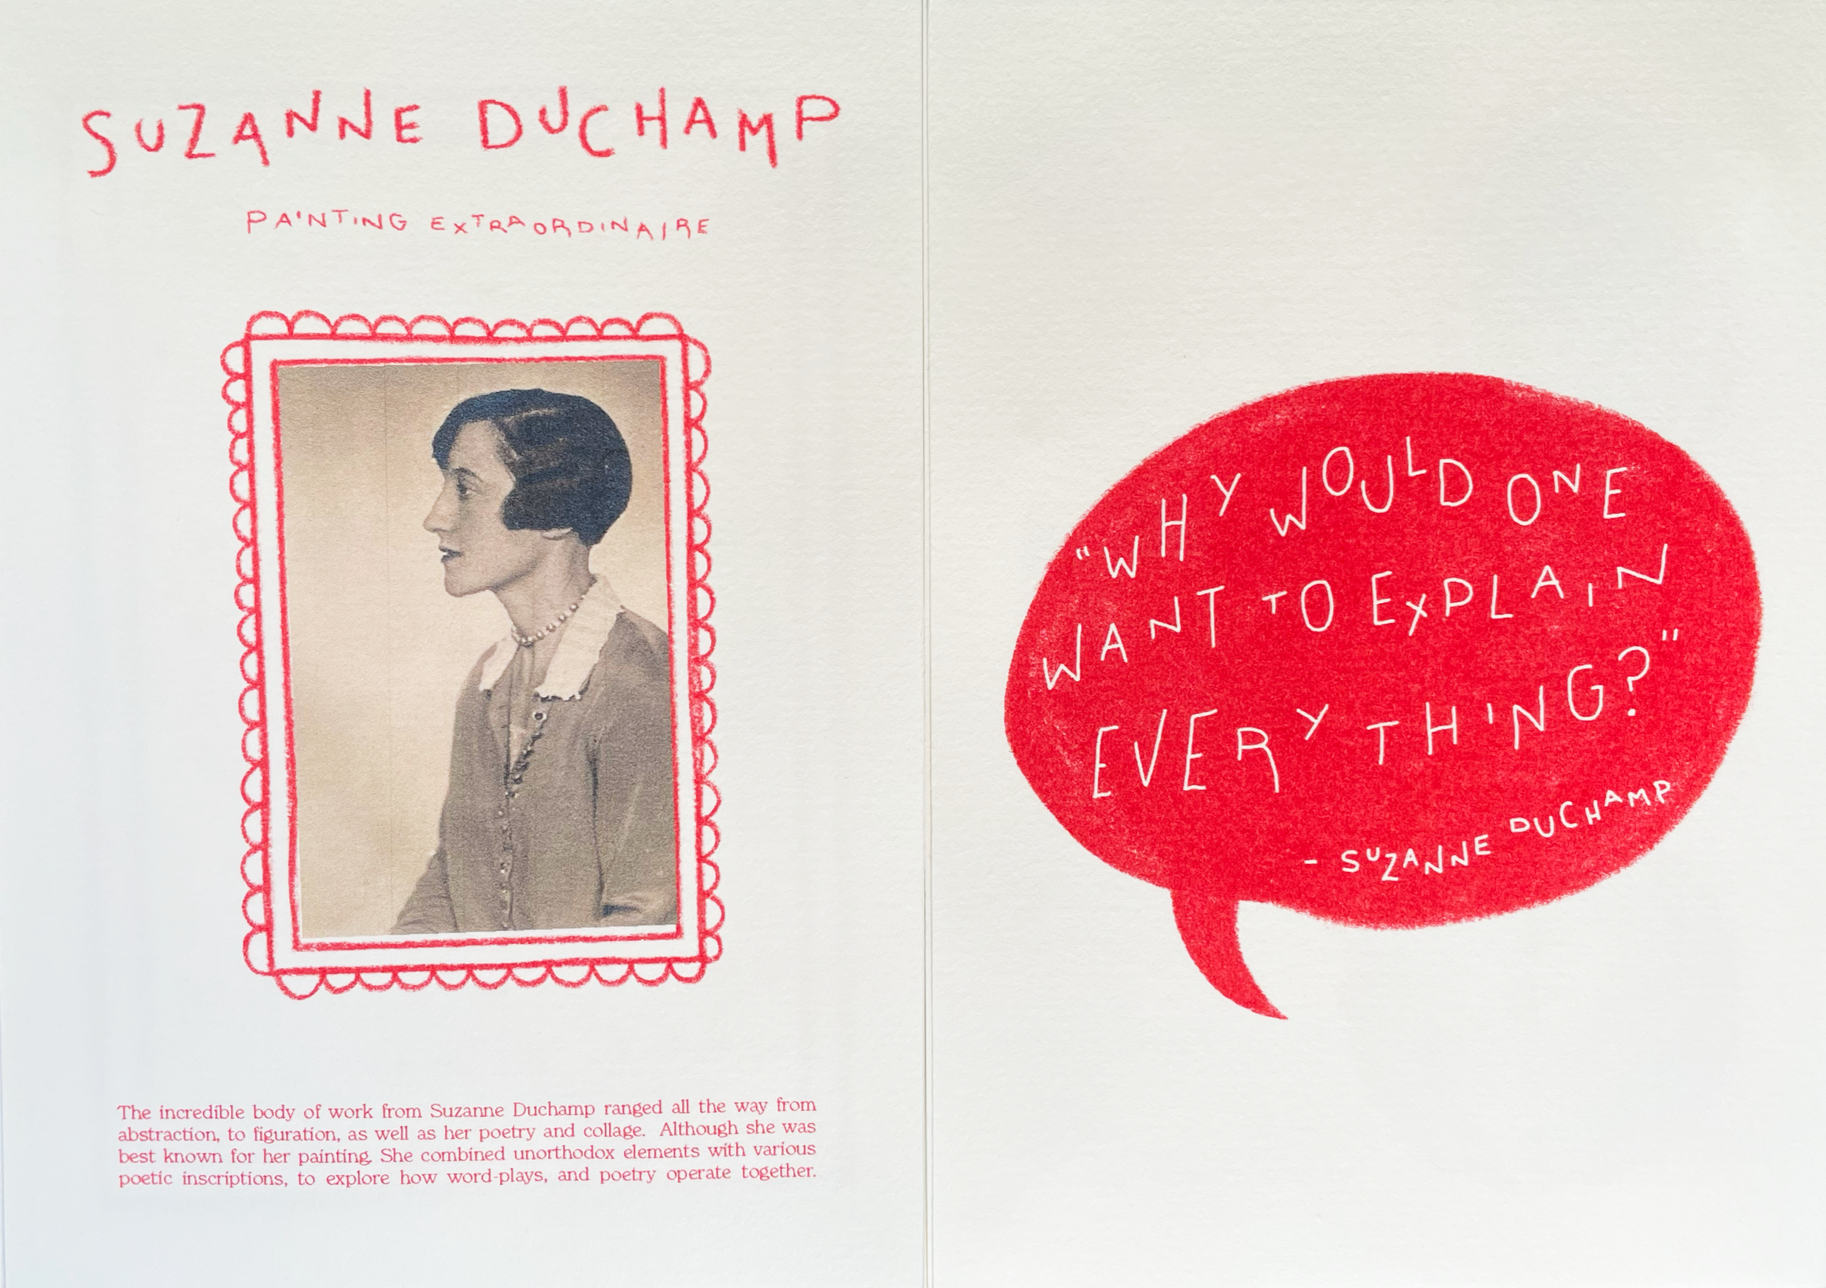 SUZANNE DUCHAMP
PAINTING EXTRAORDINAIRE
The incredible body of work from Suzanne Duchamp ranged all the way from
abstraction, to figuration, as well as her poetry and collage. Although she was
best known for her painting. She combined unorthodox elements with various
poetic inscriptions, to explore how word-plays, and poetry operate together.
"WHY WOULD ONE
WANT TO EXPLAIN
EVERYTHING?"
- SUZANNE DUCHAMP